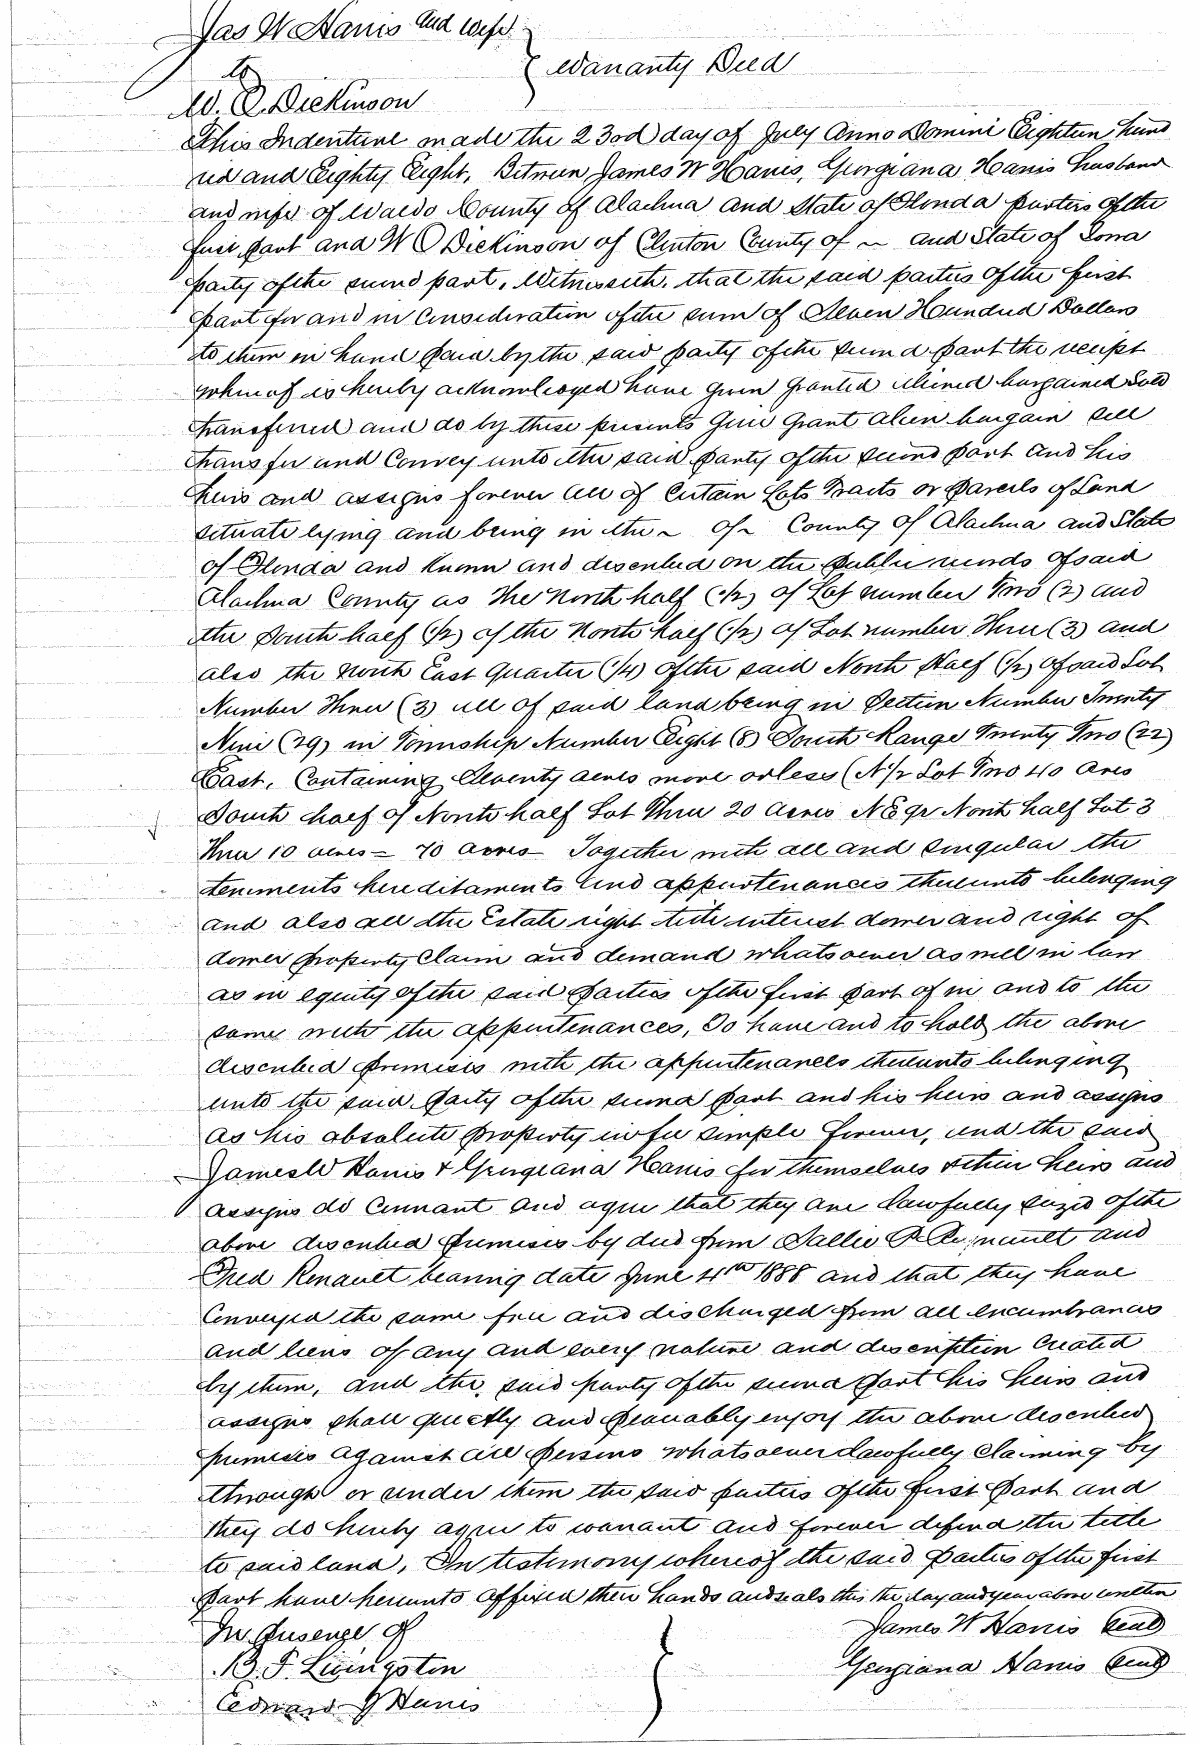 Jas W Harris and wife
to } Warranty Deed
W. O. Dickinson
This Indenture made the 23rd day of July Anno Domini Eighteen hund
red and Eighty Eight, Between James W Harris, Georgiana Harris husband
and wife of Waldo County of Alachua and State of Florida parties of the
first part and W O Dickinson of Clinton County of ~ and State of Iowa
party of the second part, Witnesseth, that the said parties of the first
part for and in Consideration of the sum of Eleven Hundred Dollars
to them in hand paid by the said party of the second part the receipt
whereof is hereby acknowledged have given granted aliened bargained Sold
transferred and do by these presents Give Grant Alien bargain sell
transfer and Convey unto the said party of the second part and his
heirs and assigns forever all of Certain Lots Tracts or parcels of Land
situate lying and being in the ~ of ~ County of Alachua and State
of Florida and known and described on the public records of said
Alachua County as The North half (1/2) of Lot number Two (2) and
the South half (1/2) of the North half (1/2) of Lot number Three (3) and
also the North East Quarter (1/4) of the said North Half (1/2) of said Lot
Number Three (3) all of said land being in Section Number Twenty
Nine (29) in Township Number Eight (8) South Range Twenty Two (22)
East, Containing Seventy acres more or less (N 1/2 Lot Two 40 Acres
South half of North half Lot Three 20 Acres N E qr North half Lot 3
Three 10 acres = 70 acres Together with all and singular the
tenements hereditaments and appurtenances thereunto belonging
and also all the Estate right title interest dower and right of
dower property Claim and demand whatsoever as well in law
as in equity of the said parties of the first part of in and to the
same with the appurtenances, To have and to hold the above
described premises with the appurtenances thereunto belonging
unto the said party of the second part and his heirs and assigns
as his absolute property in fee simple forever, and the said
James W Harris & Georgiana Harris for themselves & their heirs and
assigns do Covenant and agree that they are lawfully siezed of the
above described premises by deed from Sallie R and
Fred Renault bearing date June 4th 1888 and that they have
Conveyed the same free and discharged from all encumbrances
and liens of any and every nature and description Created
by them, and the said party of the second part his heirs and
assigns shall quietly and peaceably enjoy the above described
premises against all persons whatsoever lawfully Claiming by
through or under them the said parties of the first part and
they do hereby agree to warrant and forever defend the title
to said land, In testimony whereof the said parties of the first
part have hereunto affixed their hands and seals this the day and year above written
In Presence of James W Harris Seal
B. F. Livingston Georgiana Harris Seal
Edward J Harris